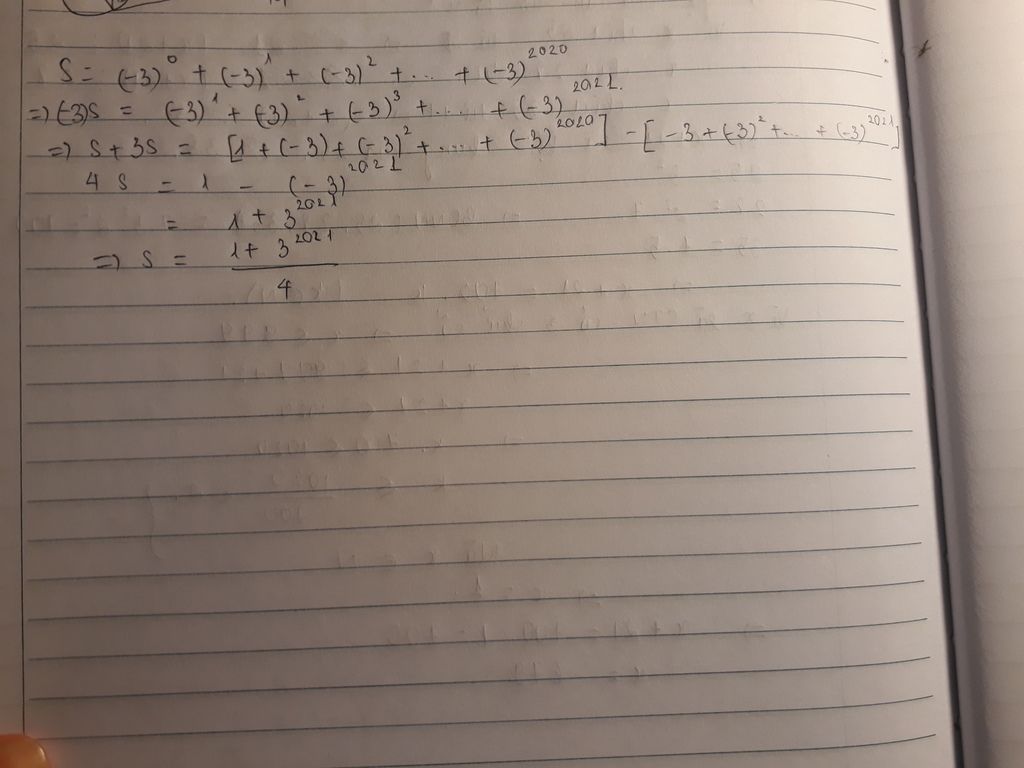 S = (-3)^0 + (-3)^1 + (-3)^2 + ... + (-3)^2020
=> (-3)S = (-3)^1 + (-3)^2 + (-3)^3 + .... + (-3)^2021.
=> S + 3S = [1 + (-3) + (-3)^2 + .... + (-3)^2020] - [-3 + (-3)^2 + ... + (-3)^2021]
4 S = 1 - (-3)^2021
= 1 + 3^2021
=> S = (1 + 3^2021)/4